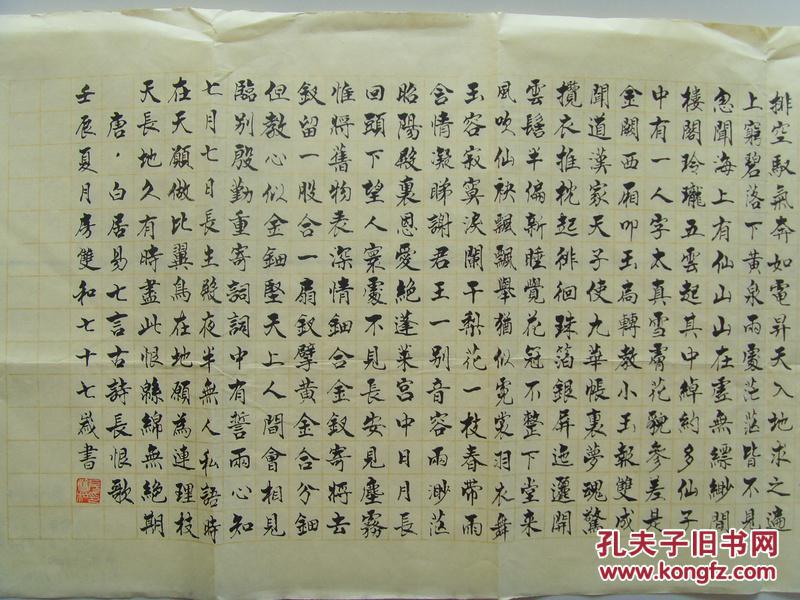 排空馭氣奔如電昇天入地求之遍
上窮碧落下黃泉兩處茫茫皆不見
忽聞海上有仙山山在虛無縹緲間
樓閣玲瓏五雲起其中綽約多仙子
中有一人字太真雪膚花貌參差是
金闕西廂叩玉扃轉教小玉報雙成
聞道漢家天子使九華帳裏夢魂驚
攬衣推枕起徘徊珠箔銀屏迤邐開
雲髻半偏新睡覺花冠不整下堂來
風吹仙袂飄飄舉猶似霓裳羽衣舞
玉容寂寞淚闌干梨花一枝春帶雨
含情凝睇謝君王一別音容兩渺茫
昭陽殿裏恩愛絕蓬萊宮中日月長
回頭下望人寰處不見長安見塵霧
惟將舊物表深情鈿合金釵寄將去
釵留一股合一扇釵擘黃金合分鈿
但教心似金鈿堅天上人間會相見
臨別殷勤重寄詞詞中有誓兩心知
七月七日長生殿夜半無人私語時
在天願做比翼鳥在地願為連理枝
天長地久有時盡此恨綿綿無絕期
唐·白居易七言古詩長恨歌
壬辰夏月房雙和七十七歲書
孔夫子旧书网
www.kongfz.com